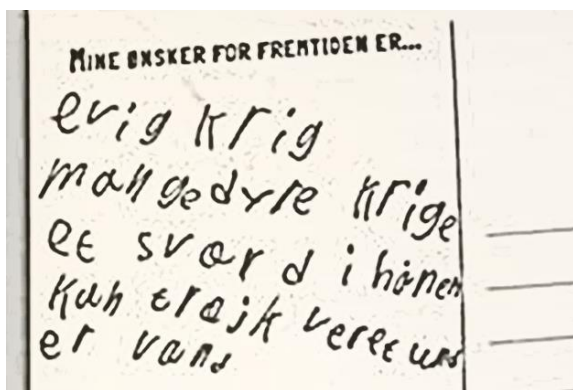 MINE ØNSKER FOR FREMTIDEN ER...
evig krig
mangedyre krige
et sværd i hånen
kan
er vans